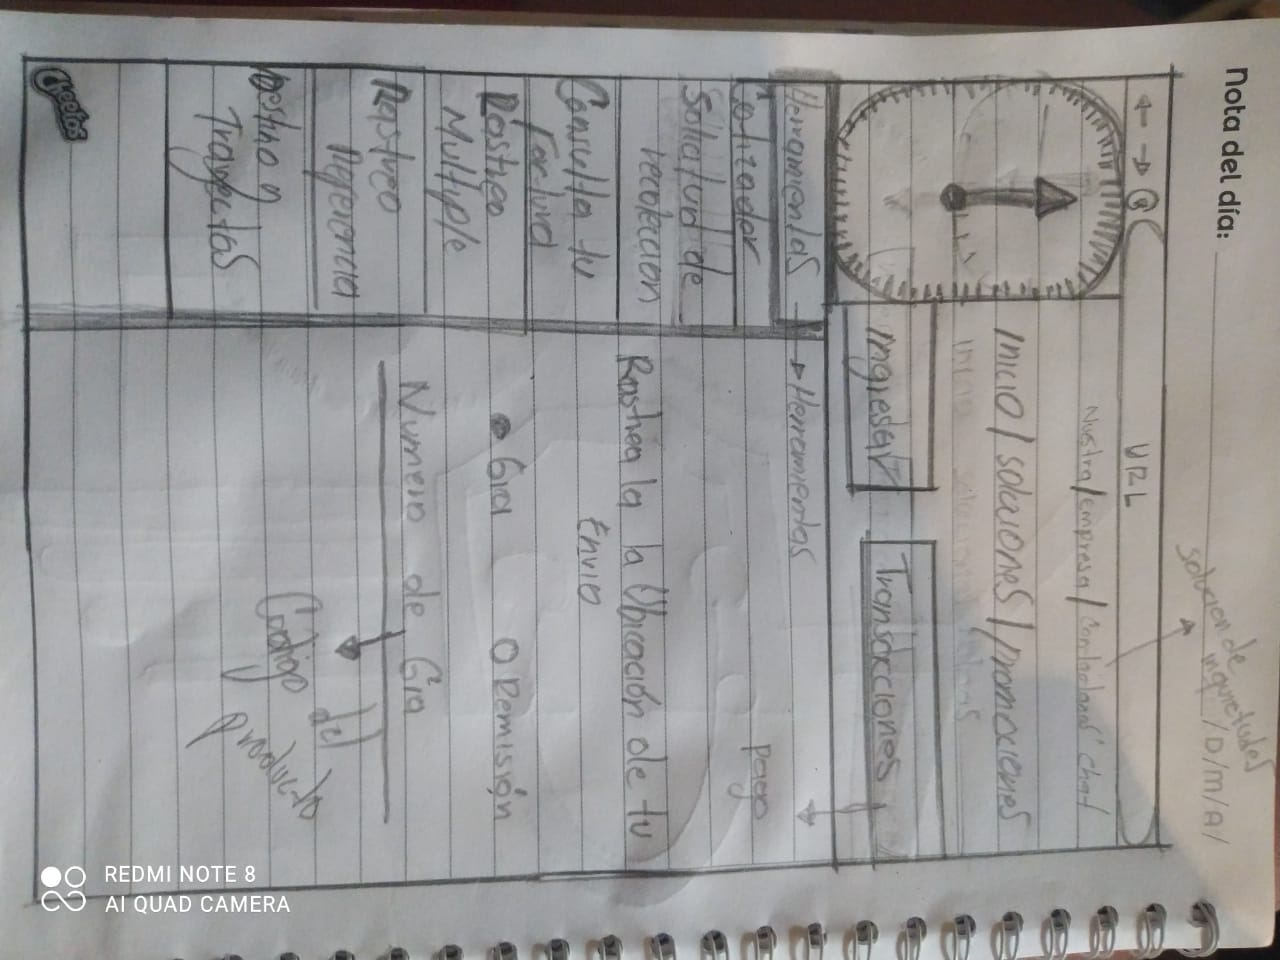 nota del día:
/D/M/A/
solucion de
inquietudes
URL
Nuestra/empresa/
chat
Inicio/soluciones/promociones
Ingresar
Transacciones
pago
Herramientas
Herramientas
Cotizador
Solicitud de
recoleccion
Consulta tu
Factura
Rastreo
Multiple
Rastreo
Referencia
Destino y
Trayectos
Rastrea la la Ubicación de tu
Envio
Gia
O Remisión
Numero de Gia
Codigo del
producto
Cheetos
REDMI NOTE 8
AI QUAD CAMERA